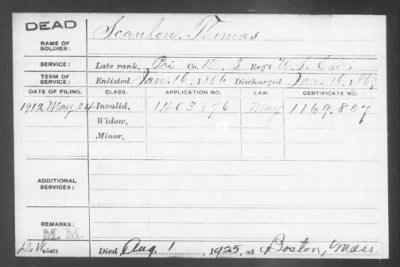 DEAD
NAME OF SOLDIER: Scanlon, Thomas
SERVICE: Late rank, Pri Co. 3 Reg't U.S.
TERM OF SERVICE: Enlisted Jan. 16, 1866 Discharged Jan. 16, 1869
DATE OF FILING. CLASS. APPLICATION NO. LAW CERTIFICATE NO.
1912 May 24 Invalid, 1403376 May 1169.807
Widow,
Minor,
ADDITIONAL SERVICES:
REMARKS:
M. M.
Died Aug. 1, 1925, at Boston, Mass.